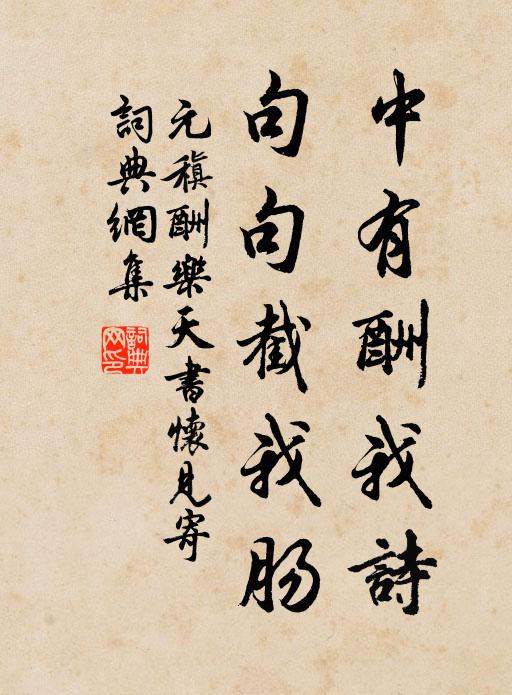 中有酬我詩
句句截我肠
元稹酬樂天書懷見寄
詞典網集
詞典網印